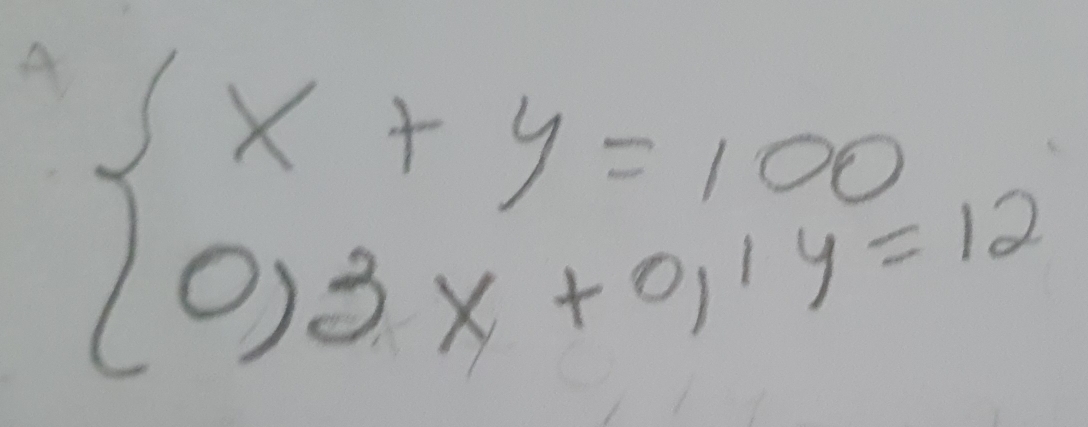 A
x + y = 100
0,3x + 0,1y = 12